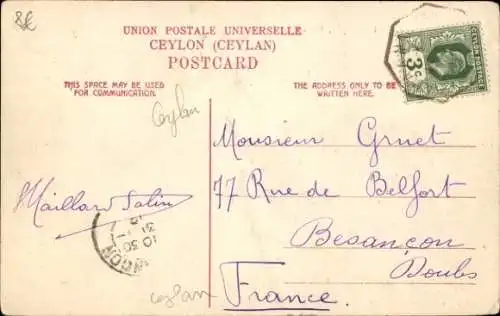 UNION POSTALE UNIVERSELLE
CEYLON (CEYLAN)
POSTCARD
THIS SPACE MAY BE USED
FOR COMMUNICATION.
THE ADDRESS ONLY TO BE
WRITTEN HERE.
CEYLON POSTAGE
3
Ceylan
Monsieur Gruet
77 Rue de Belfort
Besançon
Doubs
France
Maillard Salin
10 30
ceylan